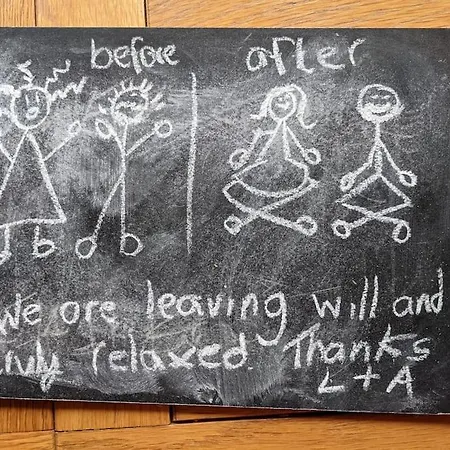 before after
We are leaving will and
relaxed. Thanks
L + A